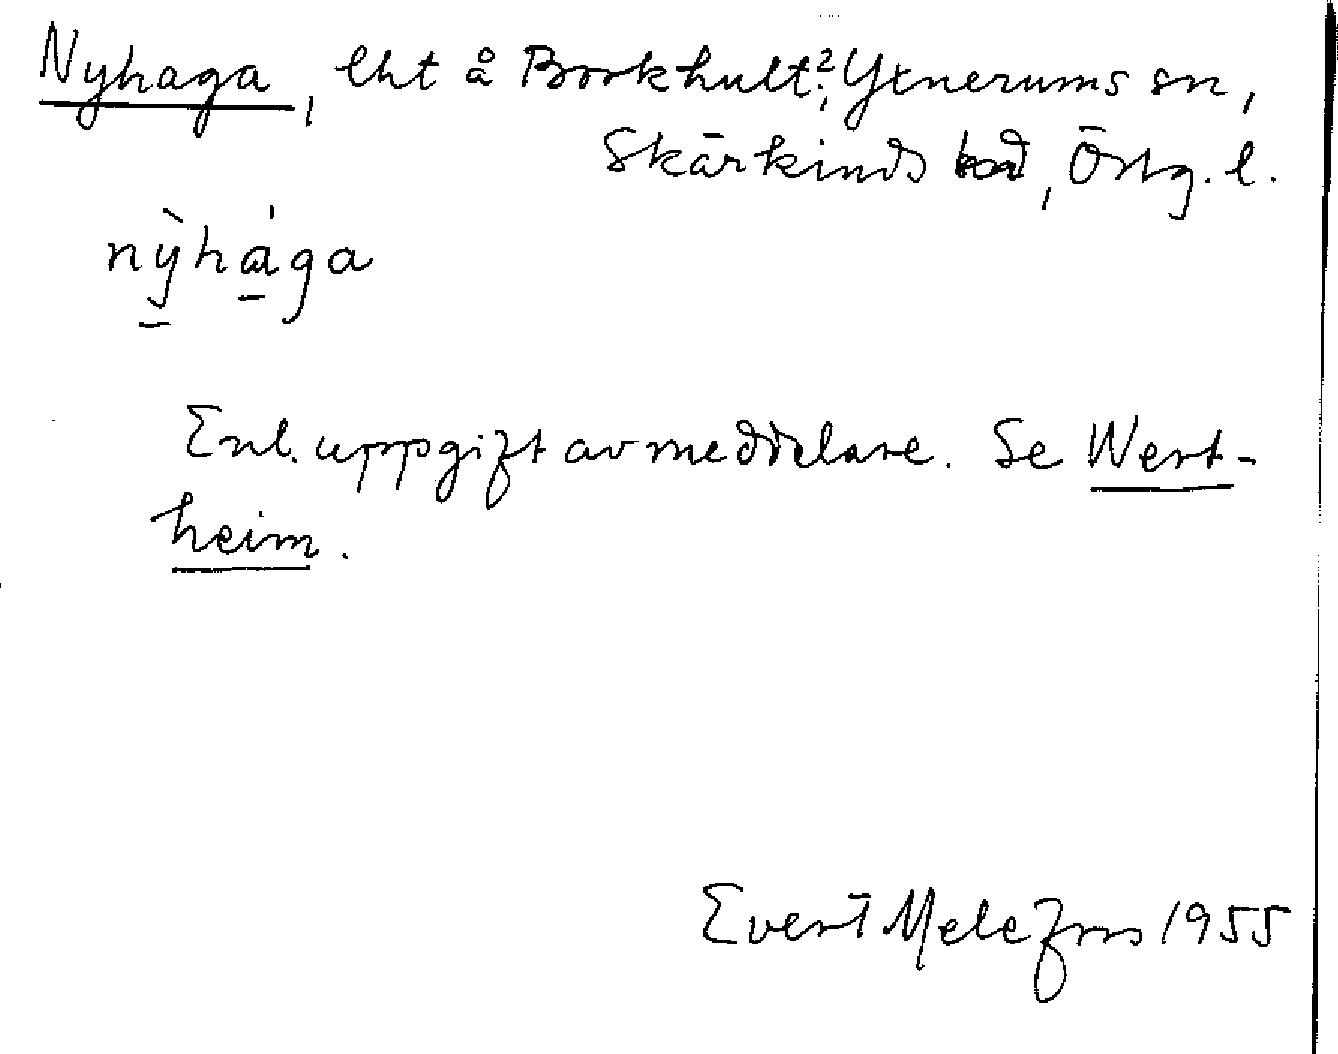 Nyhaga, lht å Borkhult², Yxnerums sn,
Skärkinds hd, Östg. l.
nỳhága
Enl. uppgift av meddelare. Se Wert-
heim.
Evert Melefors 1955